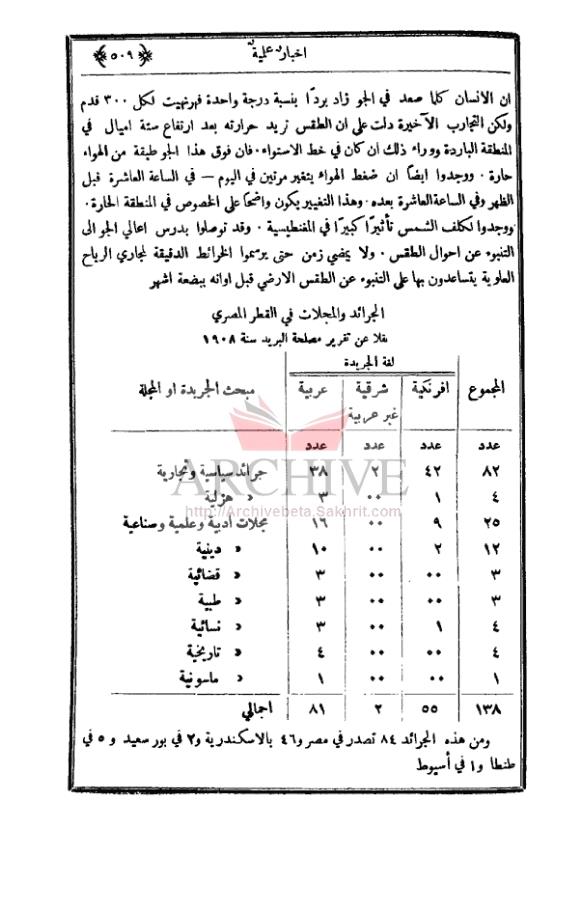 ﴿٥٠٩﴾ اخبار علمية
ان الانسان كلما صعد في الجو زاد بردًا بنسبة درجة واحدة فهرنهيت لكل ٣٠٠ قدم
ولكن التجارب الآخيرة دلت على ان الطقس تزيد حرارته بعد ارتفاع ستة اميال في
المنطقة الباردة ووراء ذلك ان كان في خط الاستواء. فان فوق هذا الجو طبقة من الهواء
حارة. ووجدوا ايضًا ان ضغط الهواء يتغير مرتين في اليوم — في الساعة العاشرة قبل
الظهر وفي الساعة العاشرة بعده. وهذا التغيير يكون واضحًا على الخصوص في المنطقة الحارة.
ووجدوا لكلف الشمس تأثيرًا كبيرًا في المغنطيسية. وقد توصلوا بدرس اعالي الجو الى
التنبوء عن احوال الطقس. ولا يمضي زمن حتى يرسموا الخرائط الدقيقة لمجاري الرياح
العلوية يتساعدون بها على التنبوء عن الطقس الارضي قبل اوانه ببضعة اشهر
الجرائد والمجلات في القطر المصري
نقلا عن تقرير مصلحة البريد سنة ١٩٠٨
لغة الجريدة
مبحث الجريدة او المجلة عربية شرقية افرنكية المجموع
غير عربية
عدد عدد عدد عدد
جرائد سياسية وتجارية ٣٨ ٢ ٤٢ ٨٢
« هزلية ٣ ٠٠ ١ ٤
مجلات أدبية وعلمية وصناعية ١٦ ٠٠ ٩ ٢٥
« دينية ١٠ ٠٠ ٢ ١٢
« قضائية ٣ ٠٠ ٠٠ ٣
« طبية ٣ ٠٠ ٠٠ ٣
« نسائية ٣ ٠٠ ١ ٤
« تاريخية ٤ ٠٠ ٠٠ ٤
« ماسونية ١ ٠٠ ٠٠ ١
اجمالي ٨١ ٢ ٥٥ ١٣٨
ومن هذه الجرائد ٨٤ تصدر في مصر و٤٦ بالاسكندرية و٢ في بور سعيد و ٥ في
طنطا و١ في أسيوط
ARCHIVE
http://Archivebeta.Sakhrit.com